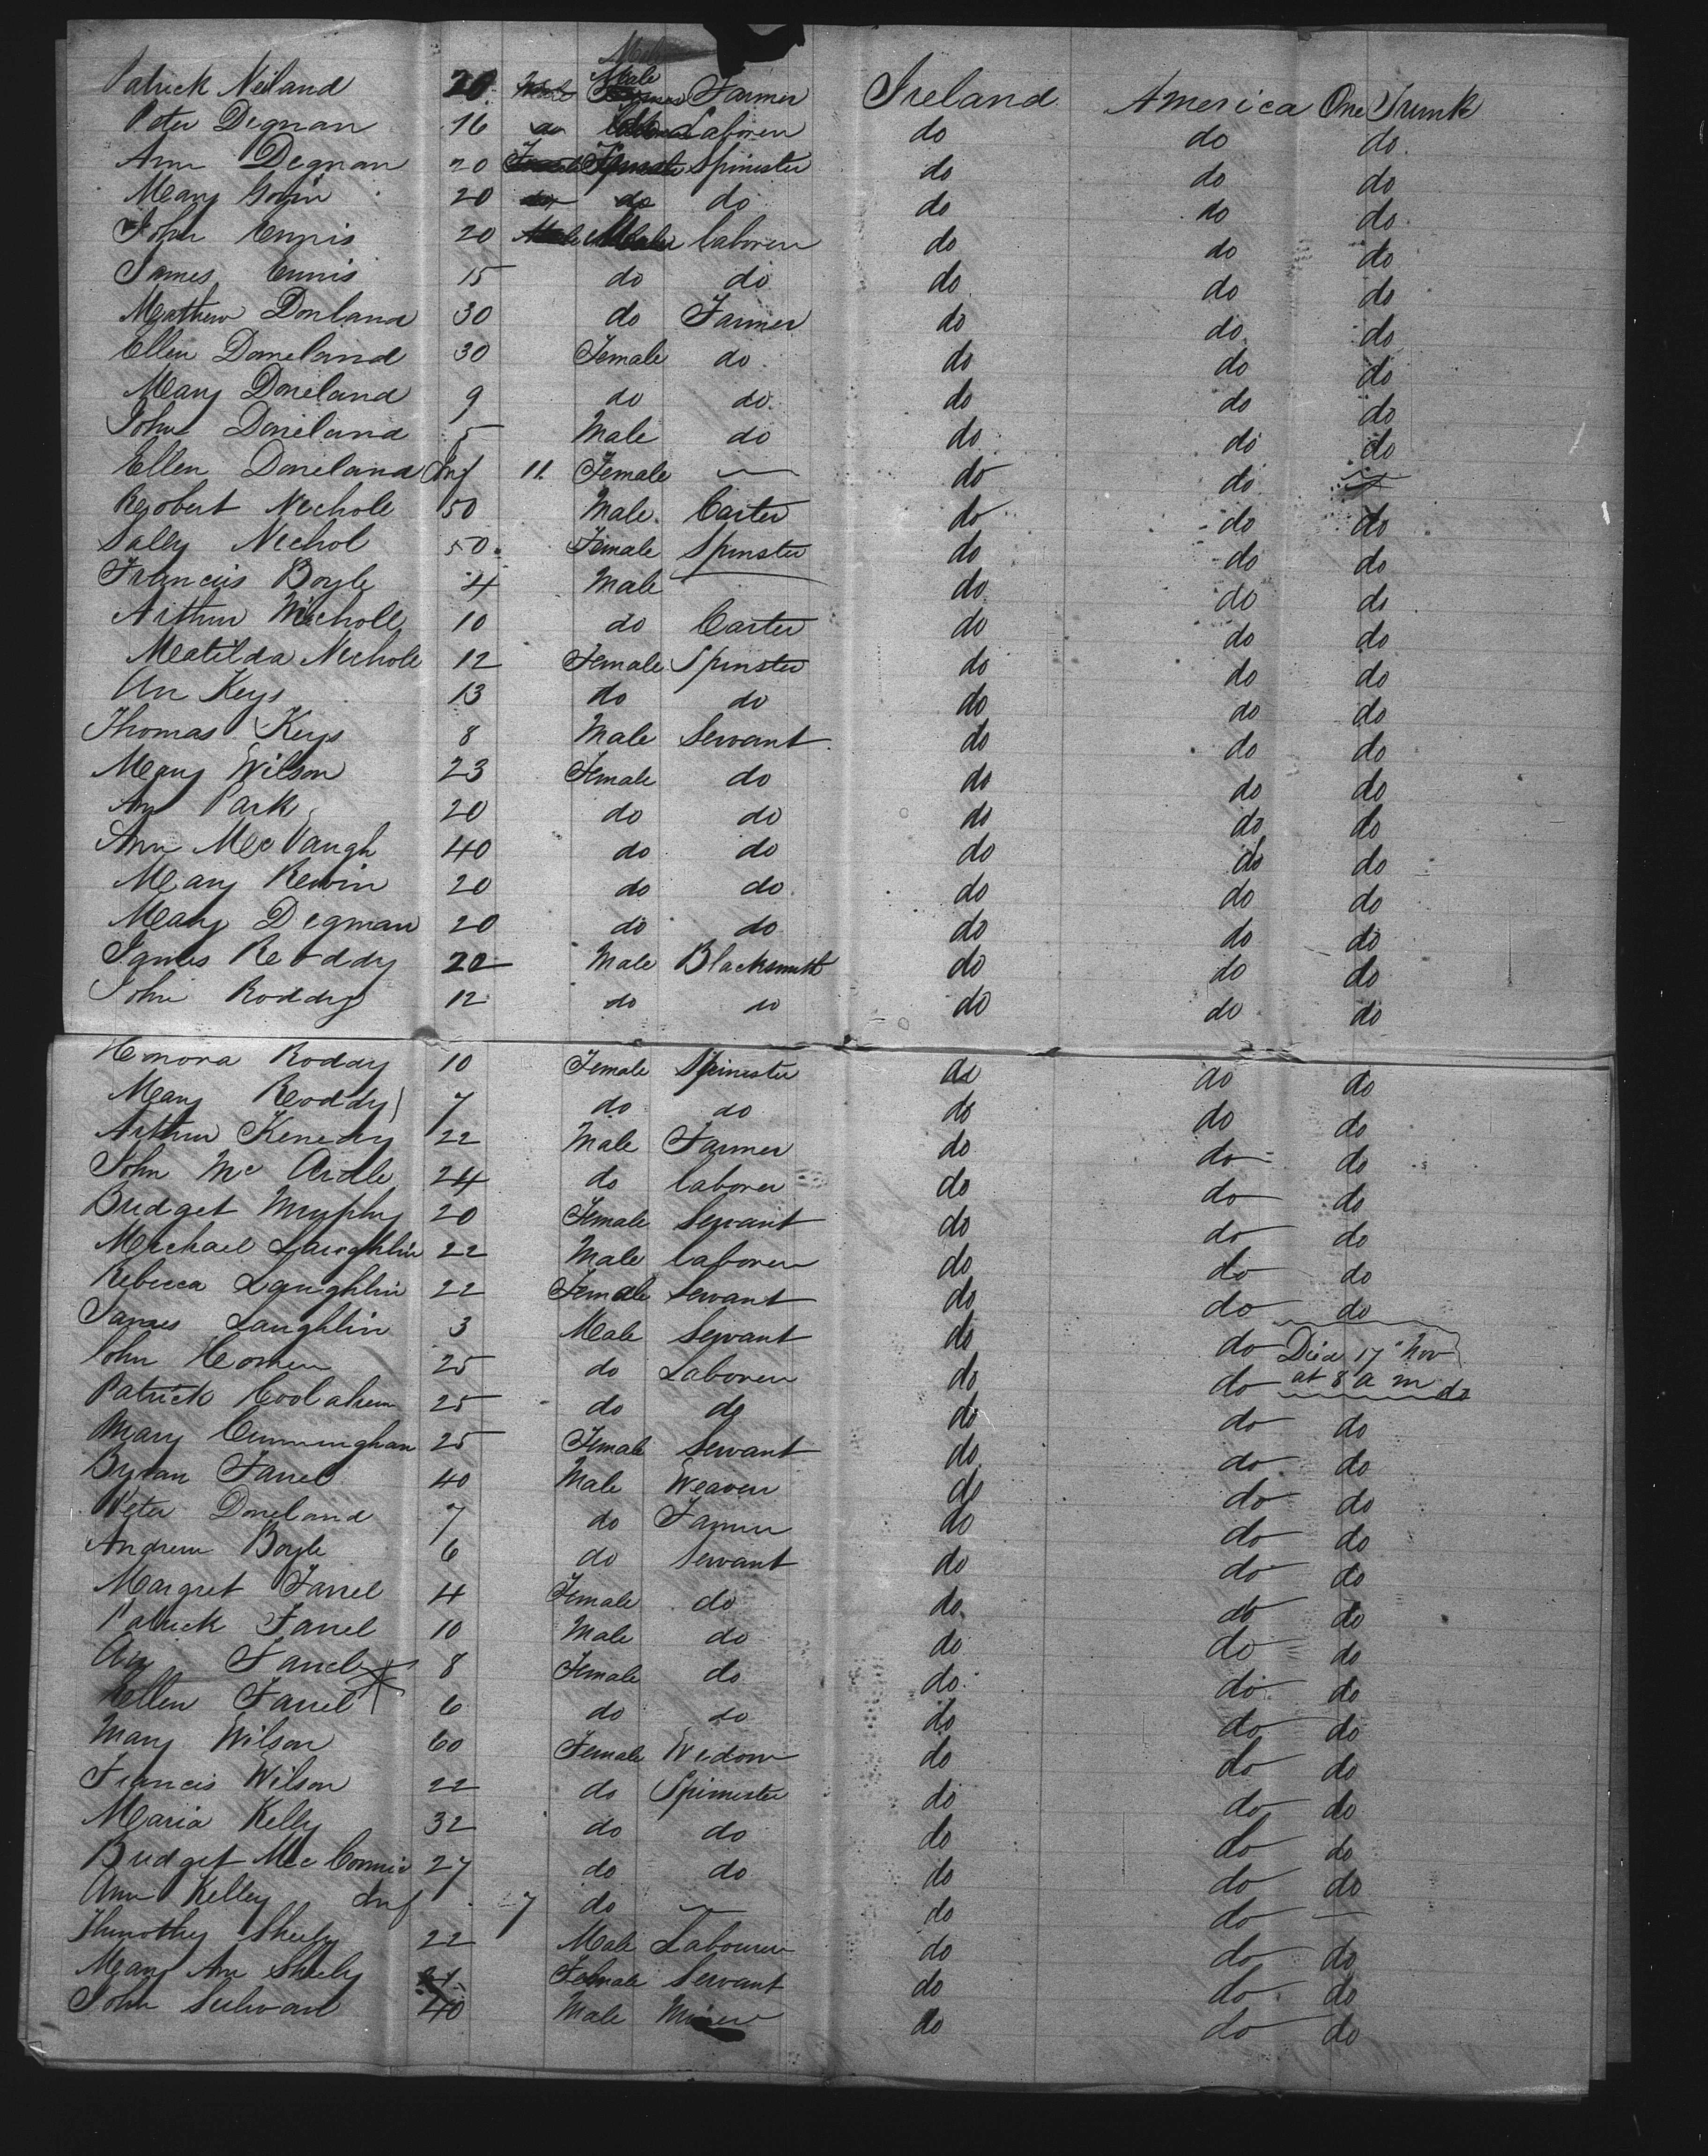 Patrick Neiland 20 Male Farmer Ireland America One Trunk
Peter Degnan 16 do Laborer do do do
Ann Degnan 20 Female Spinister do do do
Mary 20 do do do do do
John Ennis 20 Male laborer do do do
James Ennis 15 do do do do do
Mathew Donland 30 do Farmer do do do
Ellen Doneland 30 Female do do do do
Mary Doneland 9 do do do do do
John Doneland 5 Male do do do do
Ellen Doneland Inf 11 Female — do do —
Robert Nichole 50 Male Carter do do do
Sally Nichol 50 Female Spinster do do do
Francis Boyle 4 Male — do do do
Arthur Nicholl 10 do Carter do do do
Matilda Nichole 12 Female Spinster do do do
An Keys 13 do do do do do
Thomas Keys 8 Male Servant do do do
Mary Wilson 23 Female do do do do
An Park 20 do do do do do
Ann McVaugh 40 do do do do do
Mary Kerwin 20 do do do do do
Mary Degman 20 do do do do do
James Roddy 22 Male Blacksmith do do do
John Roddy 12 do do do do do
Honora Roddy 10 Female Spinester do do do
Mary Roddy 7 do do do do do
Arthur Kenedy 22 Male Farmer do do do
John Mc Ardle 24 do laborer do do do
Bridget Murphy 20 Female Servant do do do
Michael Laughlin 22 Male laborer do do do
Rebecca Laughlin 22 Female Servant do do do
James Laughlin 3 Male Servant do do Died 17" Nov
at 8 a m
John 25 do Laborer do do do
Patrick Coolahan 25 do do do do do
Mary Cunningham 25 Female Servant do do do
Byran Farrel 40 Male Weaver do do do
Peter Doneland 7 do Farmer do do do
Andrew Boyle 6 do Servant do do do
Margret Farrel 4 Female do do do do
Patrick Farrel 10 Male do do do do
An Farrel 8 Female do do do do
Ellen Farrel 6 do do do do do
Mary Wilson 60 Female Widow do do do
Francis Wilson 22 do Spinnester do do do
Maria Kelly 32 do do do do do
Bridget McCormic 27 do do do do do
Ann Kelley Inf 7 do — do do —
Thimothy Sheehy 22 Male Labourer do do do
Mary An Sheehy 21 Female Servant do do do
John Sulivan 40 Male Miner do do do